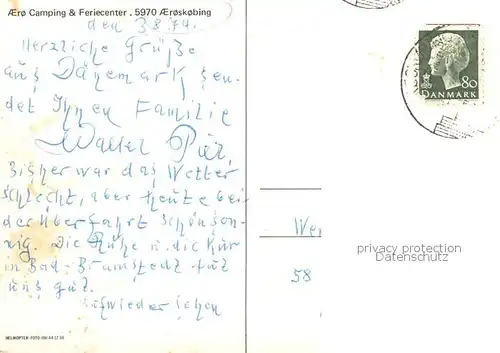 Ærø Camping & Feriecenter . 5970 Ærøskøbing
den 3.8.74.
Herzliche Grüße
aus Dänemark sen-
det Ihnen Familie
Walter
Bisher war das Wetter
schlecht, aber heute bei
der Überfahrt schön son-
nig. Die Ruhe u. die Kur
in Bad-Bramstedt tut
uns gut.
80
DANMARK
privacy protection
Datenschutz
58